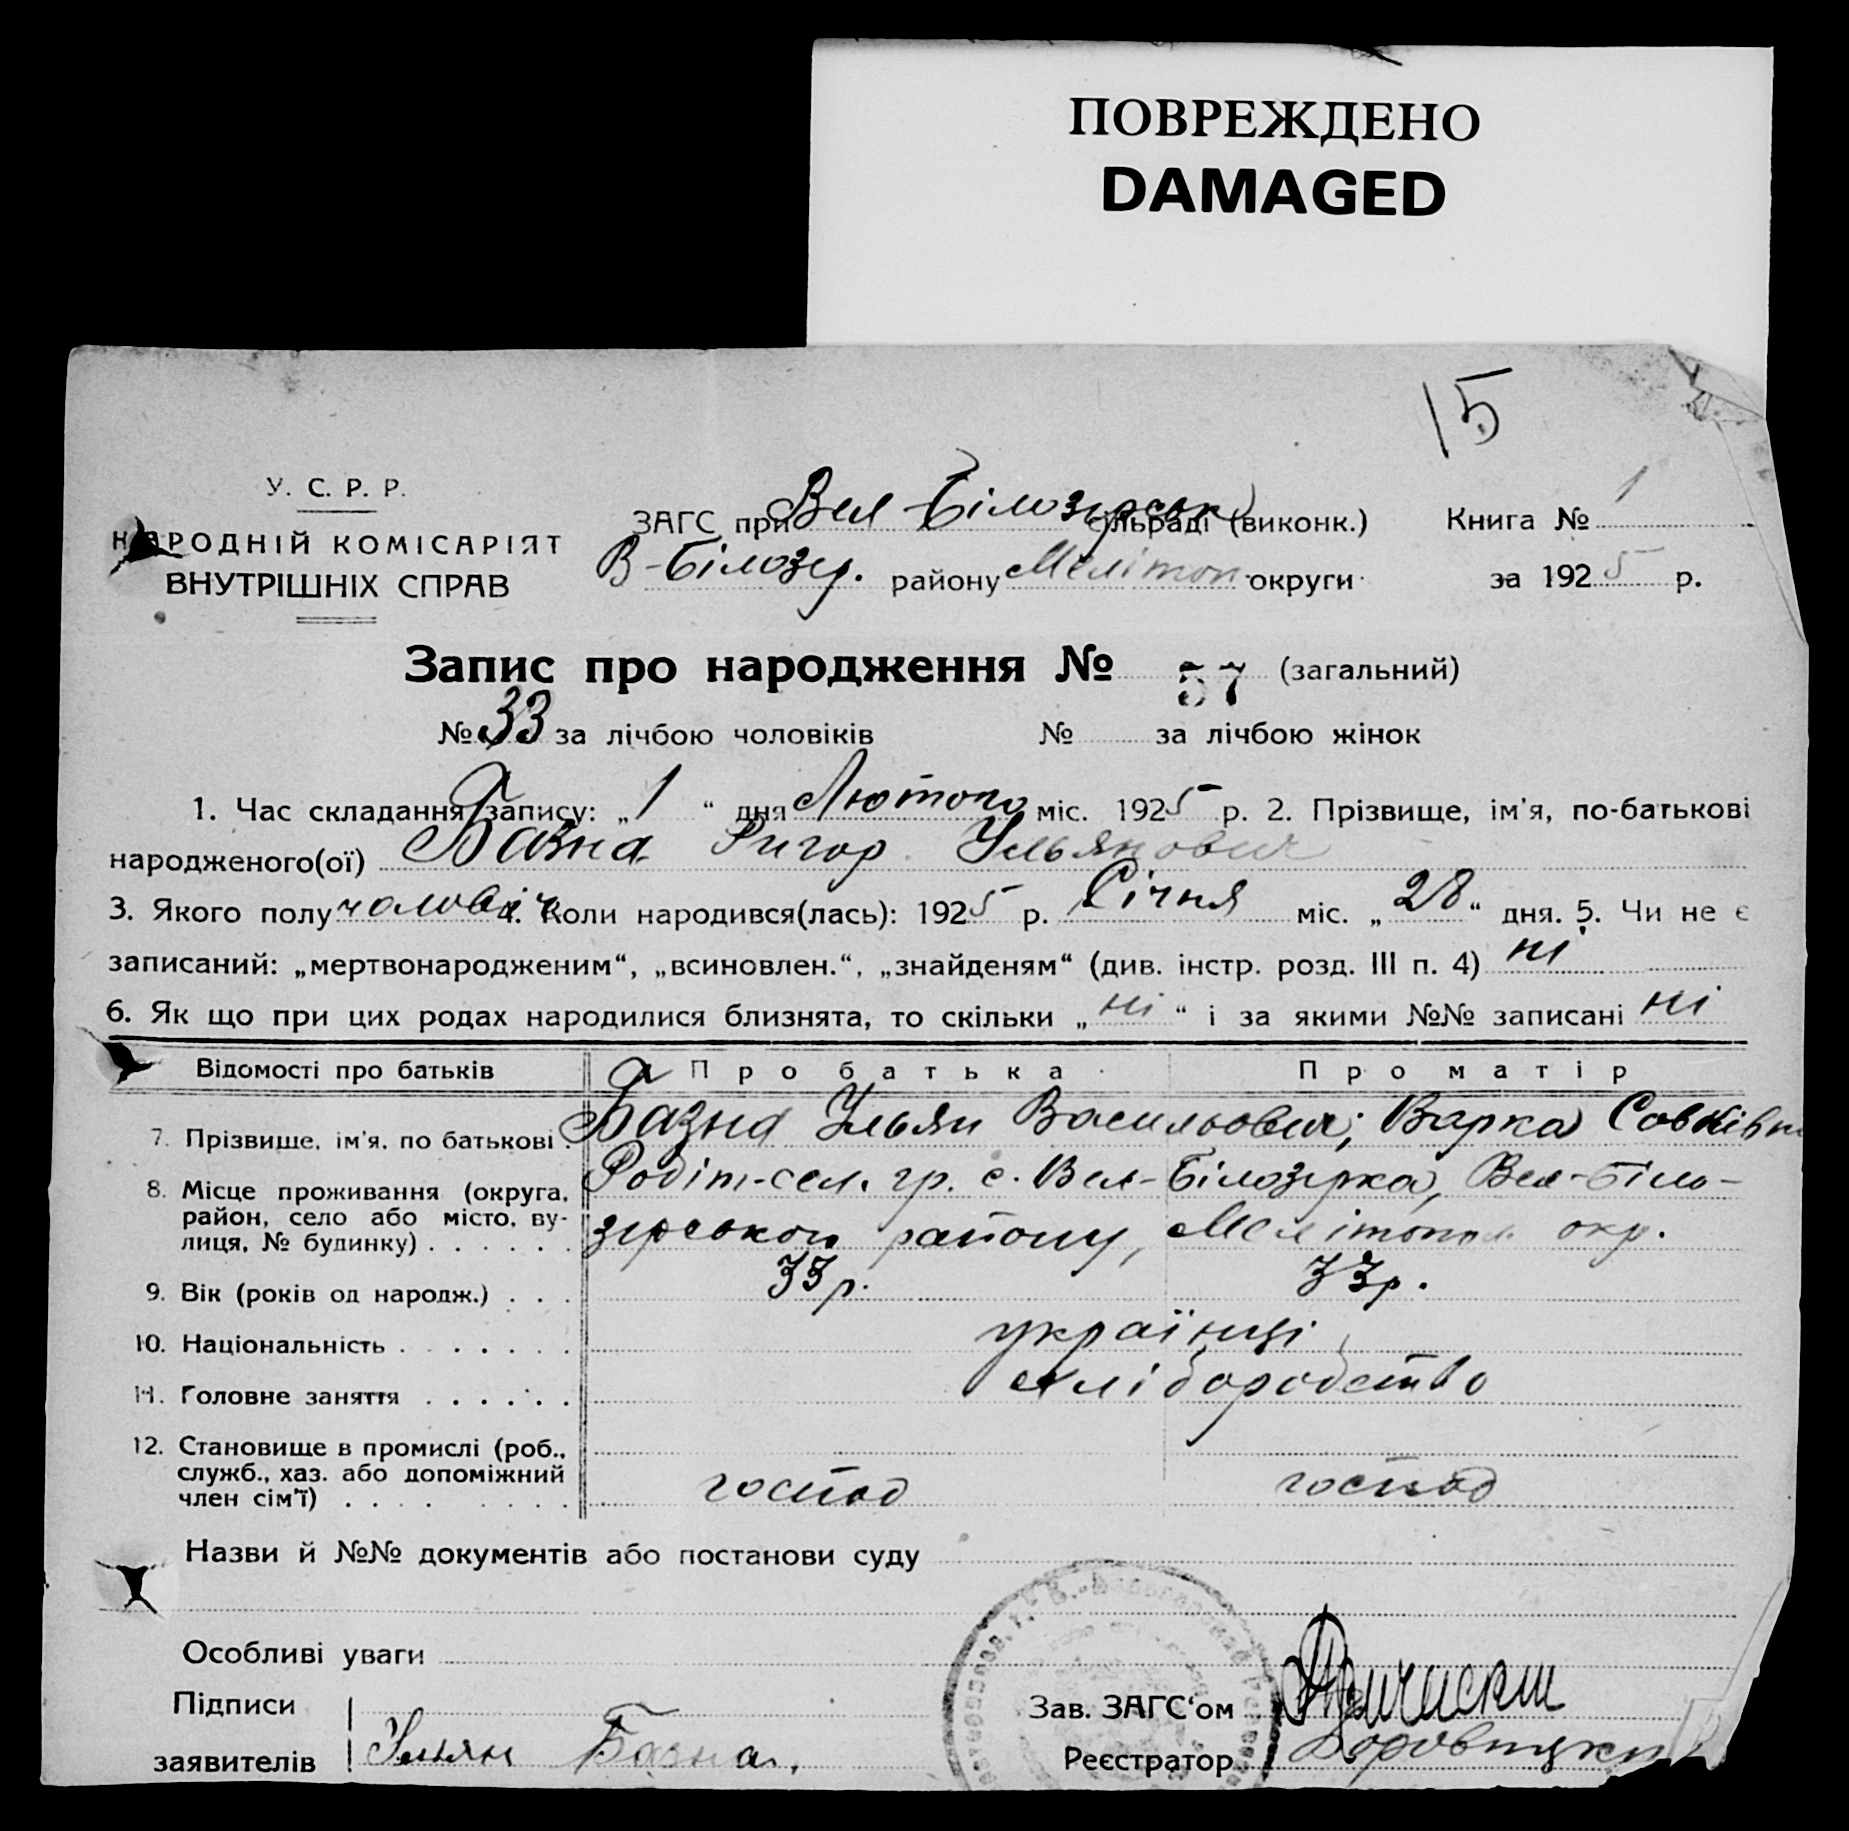 ПОВРЕЖДЕНО
DAMAGED
15
У. С. Р. Р.
НАРОДНІЙ КОМІСАРІЯТ
ВНУТРІШНІХ СПРАВ
ЗАГС при Вел-Білозірськ сільраді (виконк.)
В-Білозер. району Мелітоп. округи
Книга № 1
за 1925 р.
Запис про народження № 57 (загальний)
№ 33 за лічбою чоловіків № за лічбою жінок
1. Час складання запису: „1“ дня Лютого міс. 1925 р. 2. Прізвище, ім'я, по-батькові
народженого(ої) Базна Ригор Ульянович
3. Якого полу чоловіч 4. Коли народився(лась): 1925 р. Січня міс. „28“ дня. 5. Чи не є
записаний: „мертвонародженим“, „всиновлен.“, „знайденям“ (див. інстр. розд. III п. 4) ні
6. Як що при цих родах народилися близнята, то скільки „ні“ і за якими №№ записані ні
Відомості про батьків Про батька Про матір
7. Прізвище, ім'я, по батькові. Базна Ульян Васильович; Варка Совківн
8. Місце проживання (округа, район, село або місто, вулиця, № будинку) . . . . . .
Робіт-сел. гр. с. Вел-Білозірка, Вел-Біло-
зірського району, Мелітопол. окр.
9. Вік (років од народж.) . . . 33 р. 33 р.
10. Національність . . . . . . . українці
11. Головне заняття . . . . . . хліборобство
12. Становище в промислі (роб., служб., хаз. або допоміжний член сім'ї) . . . . господ господ
Назви й №№ документів або постанови суду
Особливі уваги
Підписи
заявителів Ульян Базна.
Зав. ЗАГС'ом
Реєстратор